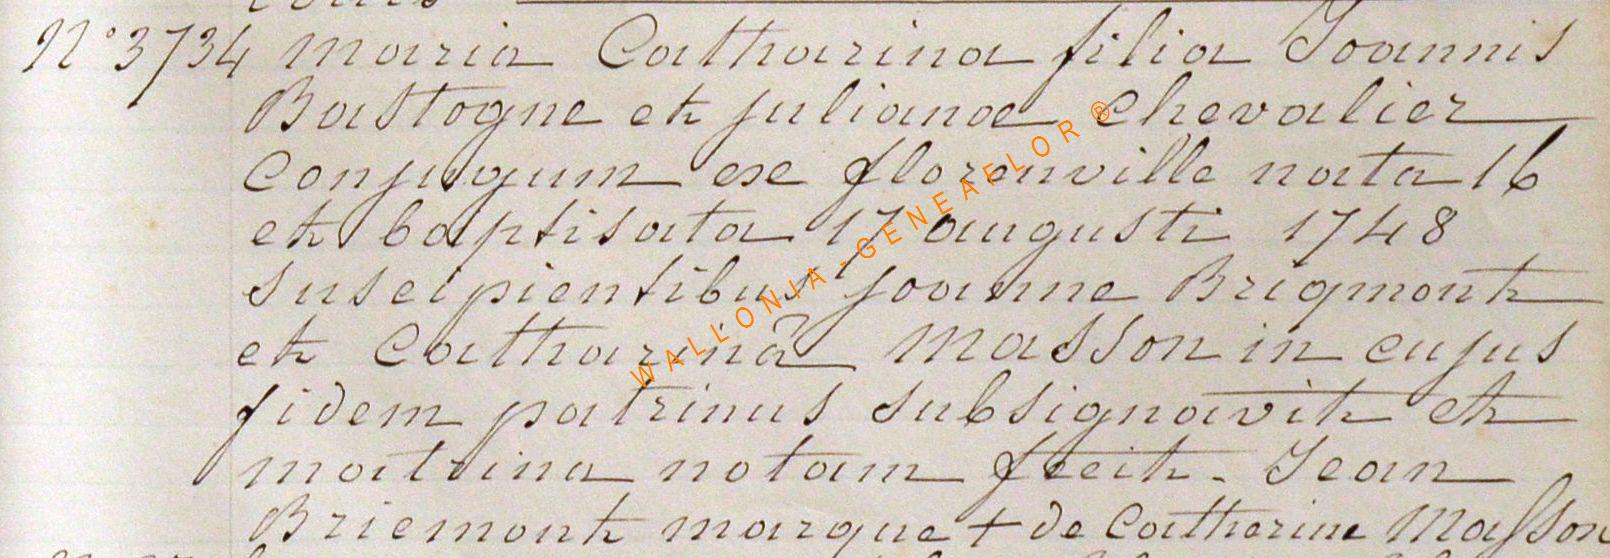 N° 3734 Maria Catharina filia Joannis
Bastogne et julianae chevalier
conjugum ex florenville nata 16
et baptisata 17 augusti 1748
suscipientibus joanne Brigmont
et Catharinâ Masson in cujus
fidem patrinus subsignavit et
matrina notam fecit. Jean
Briemont marque + de Catherine Masson
WALLONIA-GENEAFLOR®